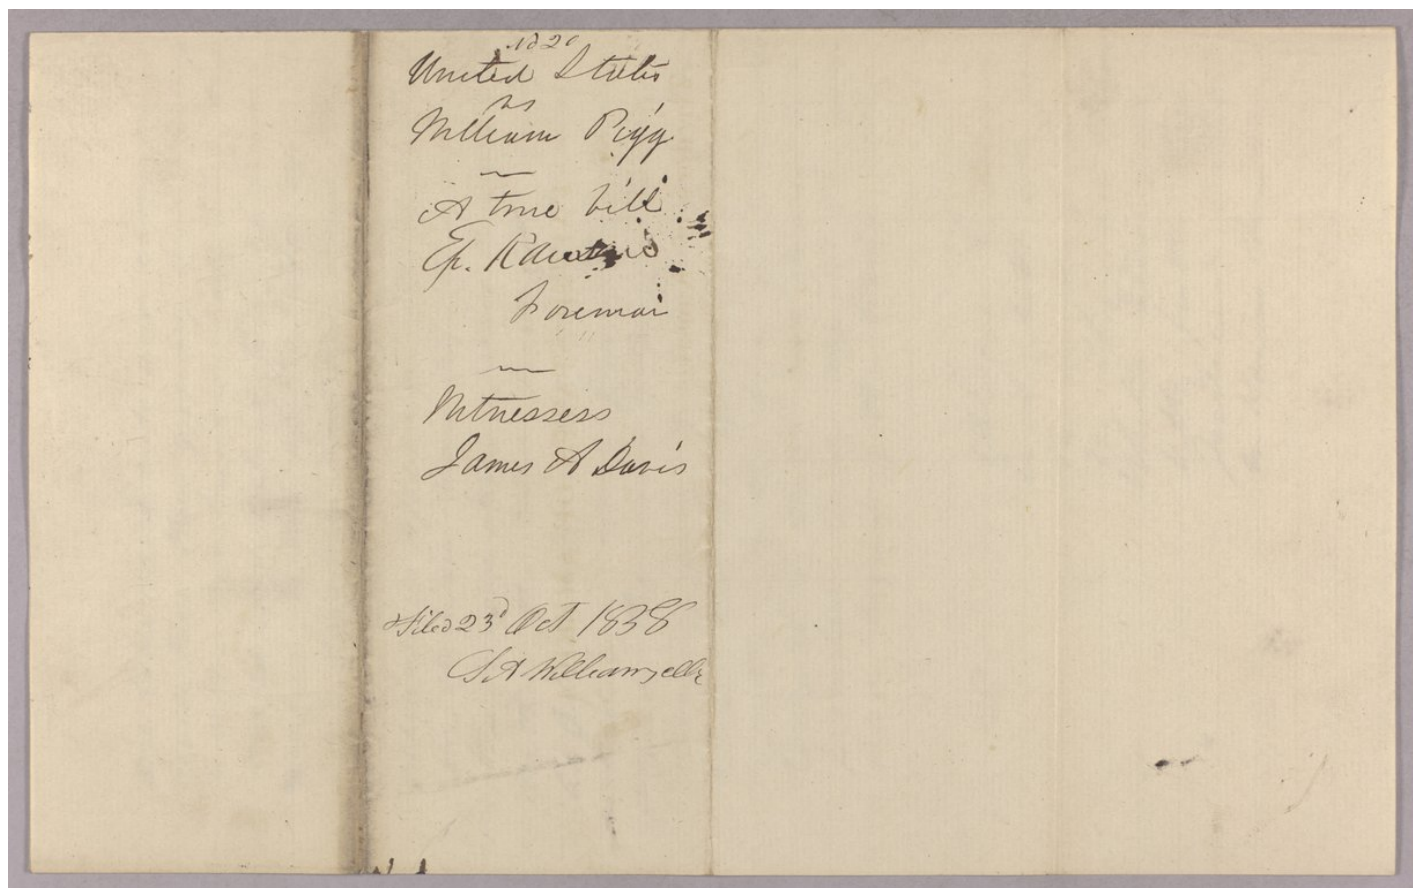 No 20
United States
vs
William Pigg
A true bill
Ep.
Foreman
Witnessess
James A Davis
Filed 23d Oct 1838
S A Williams clk